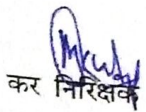 कर निरिक्षक